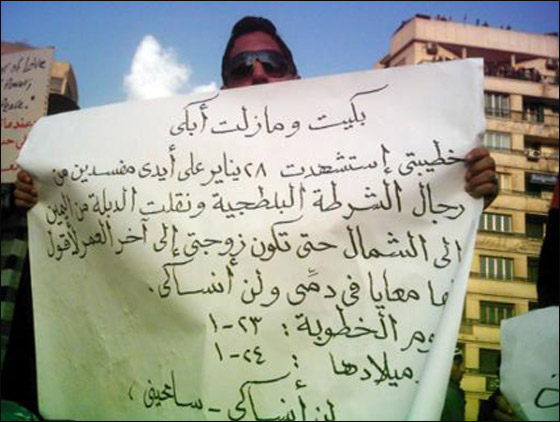 بكيت ومازلت أبكى
خطيبتى إستشهدت ٢٨ يناير على أيدى مفسدين من
رجال الشرطة البلطجية ونقلت الدبلة من اليمين
الى الشمال حتى تكون زوجتى إلى آخر العمر لأقول
معايا فى دمِّى ولن أنساكى.
يوم الخطوبة: ٢٣-١
ميلادها: ٢٤-١
لن أنساكى - سامحينى،
of Love
Power,
Peace."
عندما